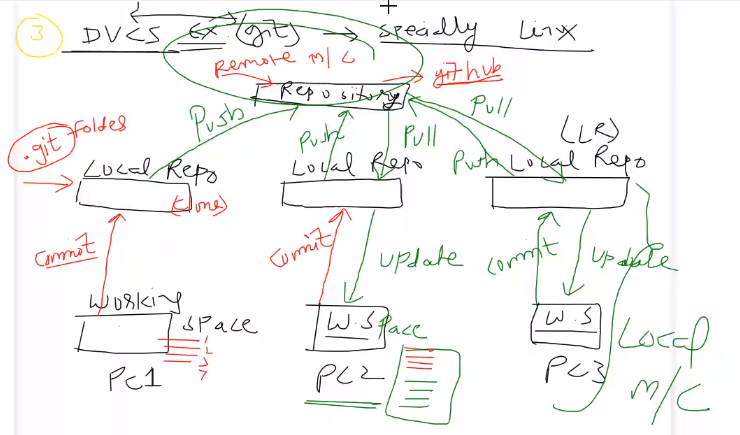 3 DVCS Ex (git) → specially Linux
Remote M/C
Repository github
Push Push Pull Push Pull
.git folder (LR)
Local Repo Local Repo Local Repo
(clone)
Commit Commit update Commit update
Working space W.Space W.S
1
2
3
PC1 PC2 PC3
Local
M/C